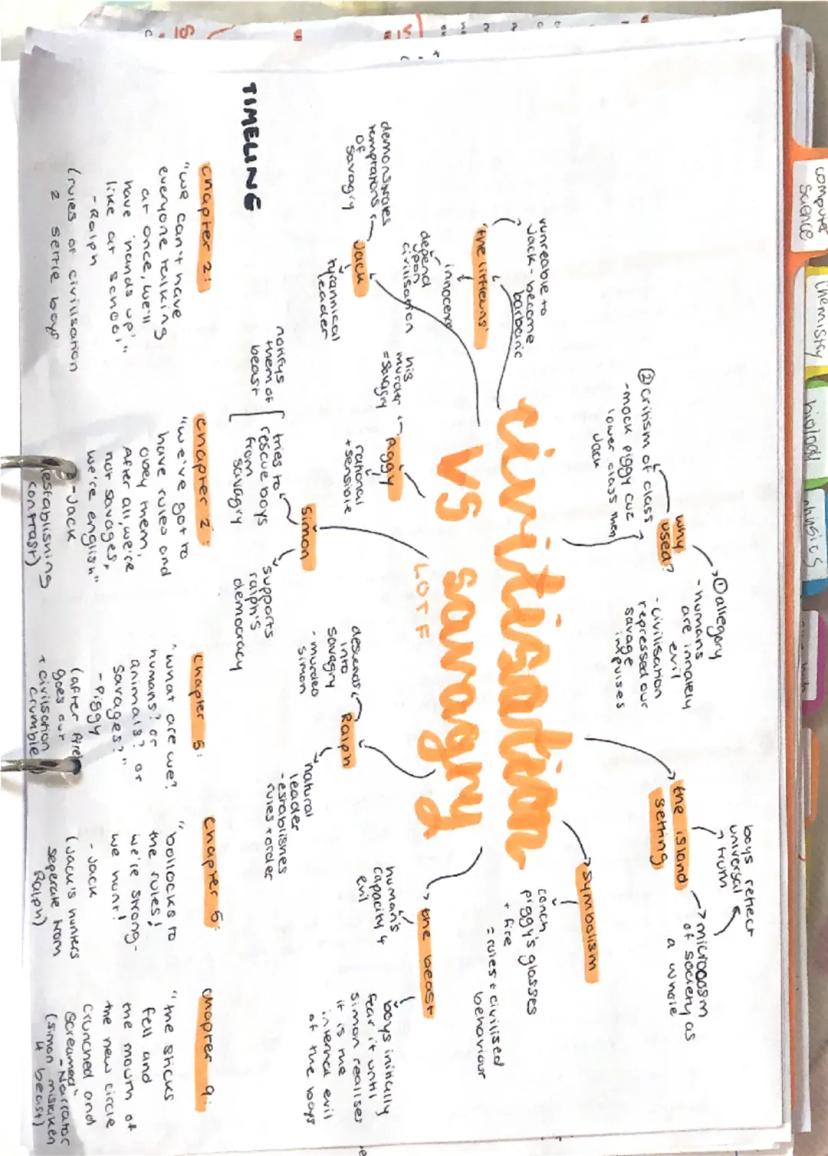 computer
science
chemistry
biology
physics
civilisation
vs savagry
LOTF
why
used?
①allegory
- humans
are innately
evil
- civilisation
repressed our
savage
impulses
②critism of class
- mock piggy cuz
lower class then
Jack
the island
setting
microcosm
of society as
a whole
boys reflect
universal
truth
symbolism
conch
piggy's glasses
+ fire
= rules + civilised
behaviour
the beast
human's
capacity 4
evil
boys initially
fear it until
simon realises
it is the
internal evil
of the boys
Ralph
natural
leader
- establishes
rules + order
descends
into
savagry
- murders
simon
simon
supports
ralph's
democracy
tries to
rescue boys
from
savagry
notifys
them of
beast
Piggy
rational
+ sensible
his
murder
= savagry
Jack
tyrannical
leader
demonstrates
temptations
of
savagry
'the littleuns'
innocent
depend
upon
civilisation
vunreable to
Jack - become
barbaric
TIMELING
chapter 2:
"we can't have
everyone talking
at once, we'll
have 'hands up'
like at school"
- Ralph
(rules of civilisation
2 settle boys
chapter 2:
"we've got to
have rules and
obey them.
After all, we're
not savages,
we're english"
- Jack
(establishing
contrast)
chapter 5:
"what are we?
humans? or
animals? or
savages?"
- Piggy
(after fire
goes out
+ civilisation
crumble)
chapter 5:
"bollocks to
the rules!
we're strong-
we hunt!
- Jack
(Jack's hunters
separate from
Ralph)
chapter 9:
"the sticks
fell and
the mouth of
the new circle
crunched and
screamed"
- Narrator
(simon mistaken
4 beast)